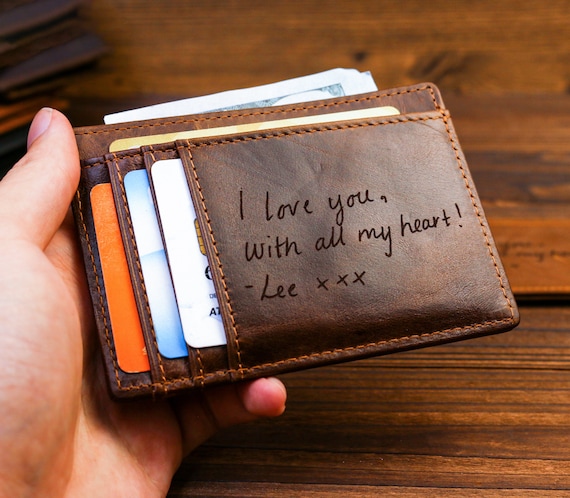 I love you,
with all my heart!
- Lee xxx